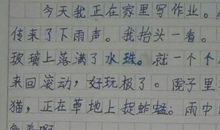 今天我正在家里写作业。
传来了下雨声。我抬头一看。
玻璃上落满了水珠。就一个个
来回滚动,好玩极了。院子里
猫,正在草地上捉蚯蚓。雨中